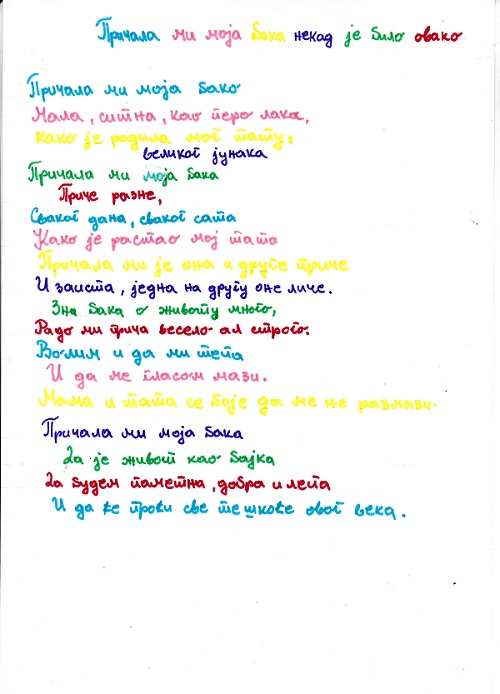 Причала ми моја бака некад је било овако
Причала ми моја бако
Мала, ситна, као перо лака,
како је родила мог тату,
великог јунака
Причала ми моја бака
Приче разне,
Сваког дана, сваког сата
Како је растао мој тата
Причала ми је она и друге приче
И заиста, једна на другу оне личе.
Зна бака о животу много,
Радо ми прича весело ал строго.
Волим и да ми тепа
И да ме гласом мази.
Мама и тата се боје да ме не размази.
Причала ми моја бака
Да је живот као бајка
Да будем паметна, добра и лепа
И да ће проћи све тешкоће овог века.